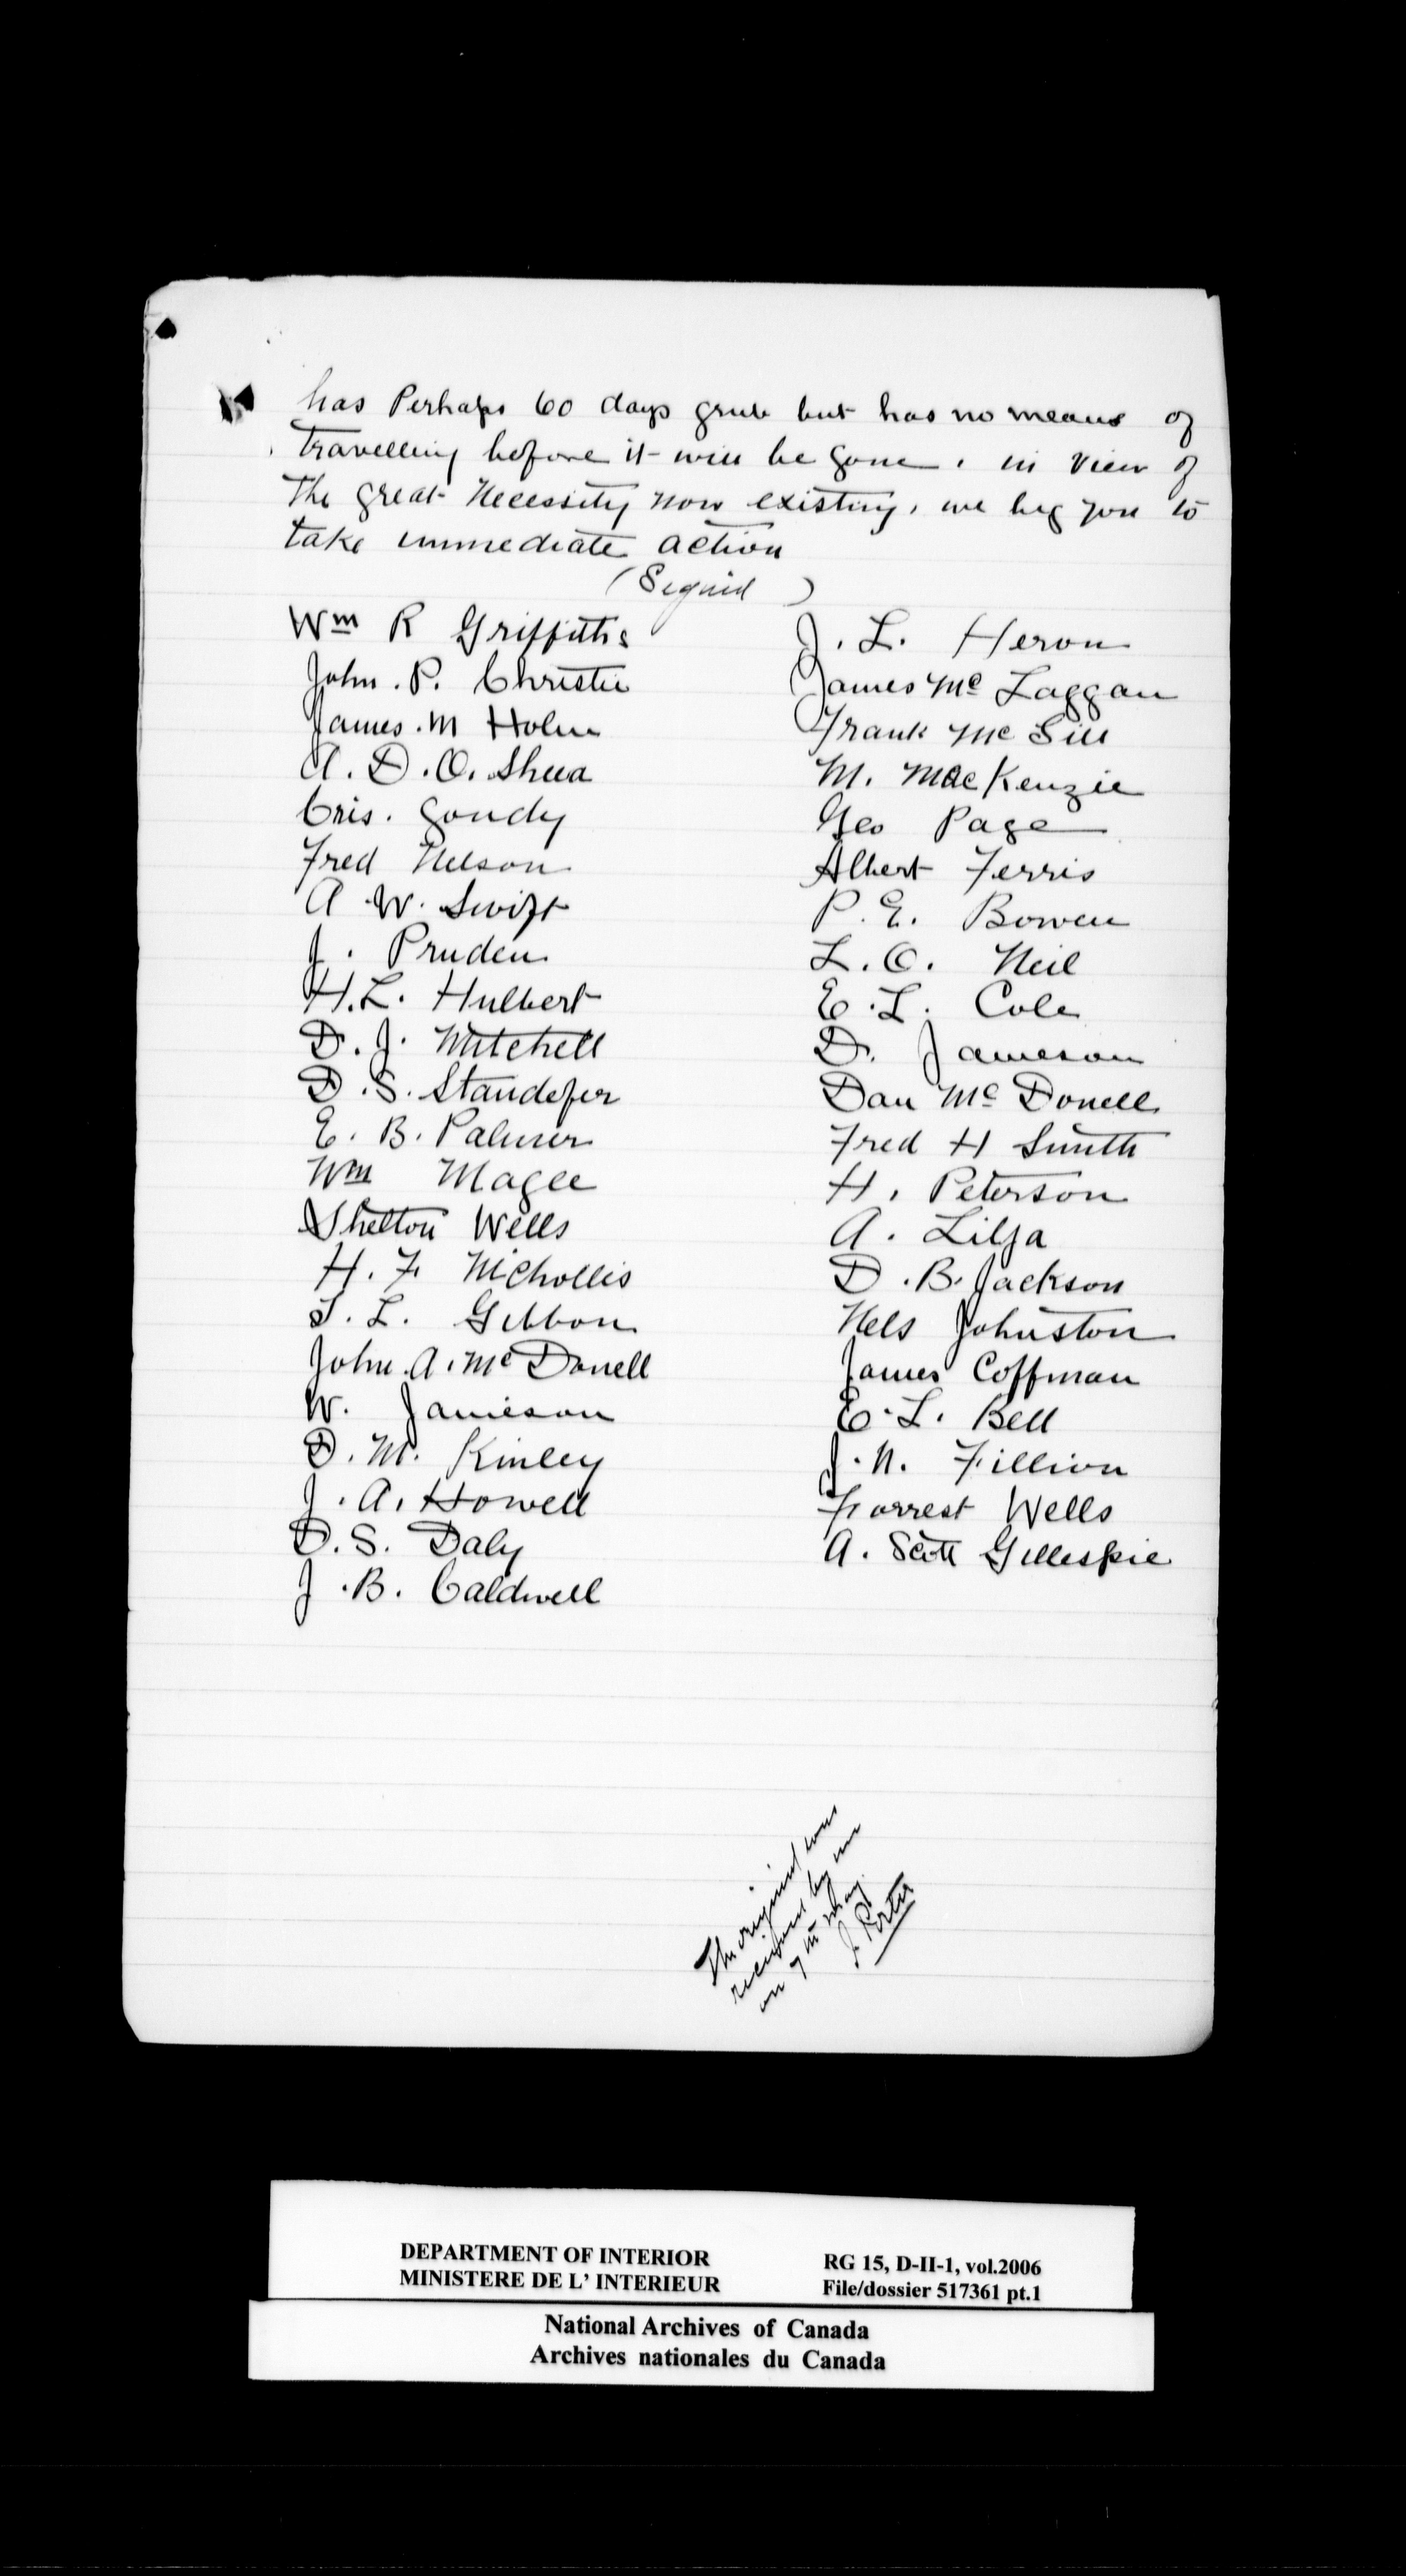 has Perhaps 60 days grub but has no means of
travelling before it will be gone. in View of
The great Necessity now existing, we beg you to
take immediate action
(Signed )
Wm R Griffiths
John. P. Christie
James. M Holm
A. D. O. Shea
Cris. Goudy
Fred Nelson
A W. Swift
J. Pruden
H. L. Hulbert
D. J. Mitchell
D. S. Standefer
E. B. Palmer
Wm Magee
Shelton Wells
H. F. Nichollis
S. L. Gibbon
John. A. Mc Donell
W. Jamieson
D. M. Kinley
J. A. Howell
D. S. Daly
J. B. Caldwell
J. L. Heron
James Mc Laggan
Frank Mc Sill
M. MacKenzie
Geo Page
Albert Ferris
P. E. Bowen
L. O. Neil
E. L. Cole
D. Jameson
Dan Mc Donell
Fred H Smith
H. Peterson
A. Lilja
D. B. Jackson
Nels Johnston
James Coffman
E. L. Bell
J. N. Fillion
Forrest Wells
A. Scott Gillespie
The original was
received by me
on 7th May.
J. Porter
DEPARTMENT OF INTERIOR
MINISTERE DE L' INTERIEUR
RG 15, D-II-1, vol.2006
File/dossier 517361 pt.1
National Archives of Canada
Archives nationales du Canada